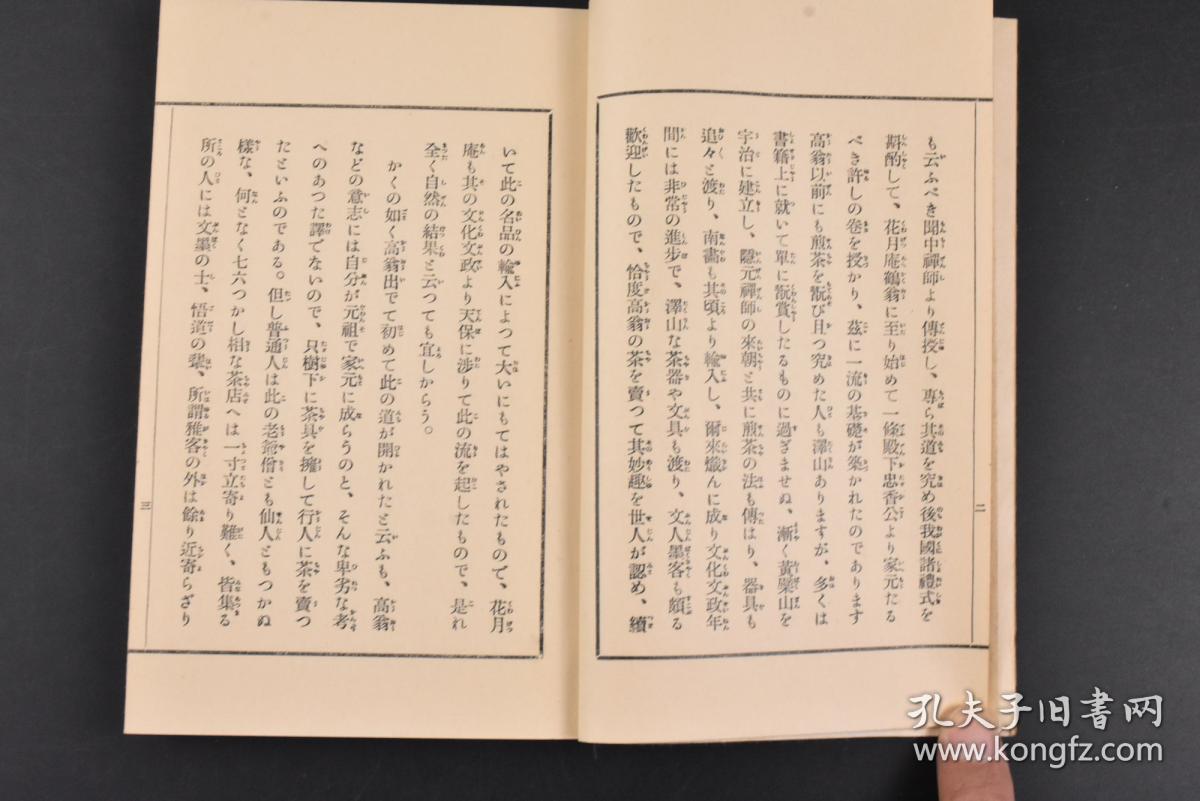 も云ふべき聞中禪師より傳授し、專ら其道を究め後我國諸禮式を
斟酌して、花月庵鶴翁に至り始めて一條殿下忠香公より家元たる
べき許しの卷を授かり、茲に一流の基礎が築かれたのであります
高翁以前にも煎茶を翫び且つ究めた人も澤山ありますが、多くは
書籍上に就いて單に翫賞したるものに過ぎませぬ、漸く黃檗山を
宇治に建立し、隱元禪師の來朝と共に煎茶の法も傳はり、器具も
追々と渡り、南畵も其頃より輸入し、爾來熾んに成り文化文政年
間には非常の進步で、澤山な茶器や文具も渡り、文人墨客も頗る
歡迎したもので、恰度高翁の茶を賣つて其妙趣を世人が認め、續
二
いて此の名品の輸入によつて大いにもてはやされたもので、花月
庵も其の文化文政より天保に涉りて此の流を起したもので、是れ
全く自然の結果と云つても宜しからう。
かくの如く高翁出でて初めて此の道が開かれたと云ふも、高翁
などの意志には自分が元祖で家元に成らうのと、そんな卑劣な考
へのあつた譯でないので、只樹下に茶具を擁して行人に茶を賣つ
たといふのである。但し普通人は此の老爺僧とも仙人ともつかぬ
樣な、何となく七六つかし相な茶店へは一寸立寄り難く、皆集る
所の人には文墨の士、悟道の輩、所謂雅客の外は餘り近寄らざり
三
孔夫子旧书网
www.kongfz.com